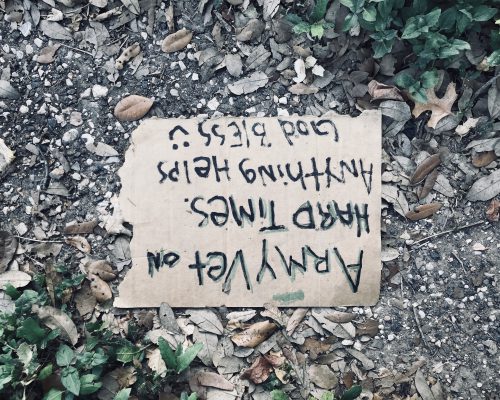 ARMY Vet ON
HARD TIMES.
ANYTHING HELPS
GOD BLESS :)